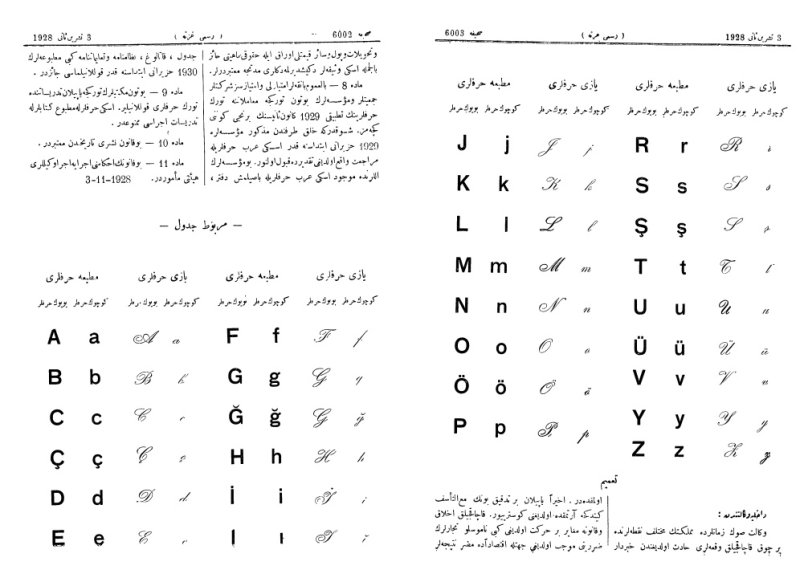 3 تشرین ثانی 1928
( رسمی غزته )
صحیفه 6002
جدول ، قاتالوغ ، نظامنامه و تعلیماتنامه کبی مطبوعه‌لرك
1930 حزیرانی ابتداسنه قدر قوللانیلماسی جائزدر .
ماده 9 — بوتون مکتبلرك تورکجه یاپیلان تدریساتنده
تورك حرفلری قوللانیلیر . اسکی حرفلرله مطبوع کتابلرله
تدریسات اجراسی ممنوعدر .
ماده 10 — بو قانون نشری تاریخندن معتبردر .
ماده 11 — بو قانونك احکامنی اجرایه اجرا وکیللری
هیئتی مأموردر . 3-11-1928
ماده 8 — بالعموم بانقه لر امتیازلی و امتیازسز شرکتلر
جمعیتلر و مؤسسه‌لرك بوتون تورکجه معاملاتنه تورك
حرفلرینك تطبیقی 1929 کانون ثانیسنك برنجی کونی
کچه‌مز . شوقدرکه خلق طرفندن مذکور مؤسسه‌لره
1929 حزیرانی ابتداسنه قدر اسکی عرب حرفلریله
مراجعت واقع اولدیغی تقدیرده قبول اولنور . بو مؤسسه‌لرك
اللرنده موجود اسکی عرب حرفلریله باصیلمش دفتر ،
— مربوط جدول —
مطبعه حرفلری یازی حرفلری مطبعه حرفلری یازی حرفلری
بویوك حرفلر کوچوك حرفلر بویوك حرفلر کوچوك حرفلر بویوك حرفلر کوچوك حرفلر بویوك حرفلر کوچوك حرفلر
A a A a F f F f
B b B b G g G g
C c C c Ğ ğ Ğ ğ
Ç ç Ç ç H h H h
D d D d İ i İ i
E e E e I ı I ı
صحیفه 6003
( رسمی غزته )
3 تشرین ثانی 1928
مطبعه حرفلری یازی حرفلری مطبعه حرفلری یازی حرفلری
بویوك حرفلر کوچوك حرفلر بویوك حرفلر کوچوك حرفلر بویوك حرفلر کوچوك حرفلر بویوك حرفلر کوچوك حرفلر
J j J j R r R r
K k K k S s S s
L l L l Ş ş Ş ş
M m M m T t T t
N n N n U u U u
O o O o Ü ü Ü ü
Ö ö Ö ö V v V v
P p P p Y y Y y
Z z Z z
تعمیم
داخلیه وکالتندن :
وکالت صوك زمانلرده مملکتك مختلف نقطه‌لرنده
بر چوق قاچاقجیلق وقعه‌لری حادث اولدیغندن خبردار
اولمقده‌در . اخیراً یاپیلان بر تدقیق بونك مع التأسف
کیتدکجه آرتمقده اولدیغنی کوستریور . قاچاقجیلق اخلاق
و قانونه مغایر بر حرکت اولدیغی کبی ناموسلو تجارلرك
ضررینی موجب اولدیغی جهتله اقتصاداً ده مضر نتیجه‌لر